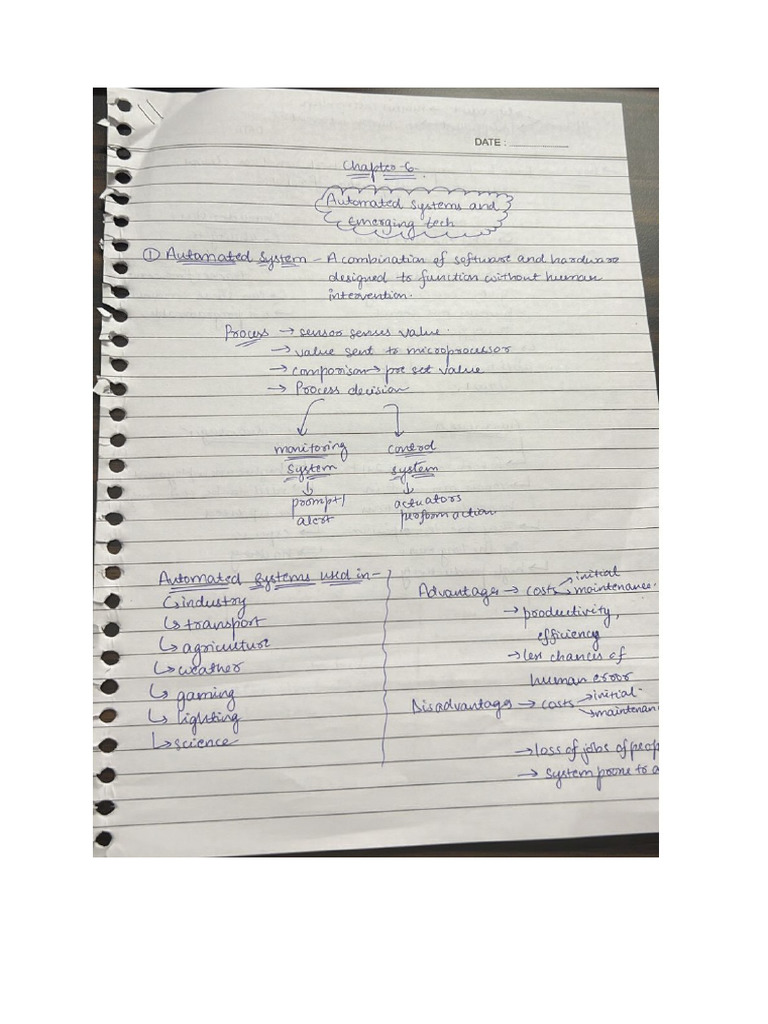 11
DATE : ____________
Chapter-6.
Automated systems and
Emerging tech
① Automated System - A combination of software and hardware
designed to function without human
intervention.
Process → sensor senses value.
→ value sent to microprocessor
→ comparison → pre set value
→ Process decision
monitoring control
system system
↓ ↓
prompt/ actuators
alert perform action
Automated Systems used in-
↳ industry
↳ transport
↳ agriculture
↳ weather
↳ gaming
↳ lighting
↳ science
Advantages → costs → initial
→ maintenance.
→ productivity,
efficiency
→ less chances of
human error
Disadvantages → costs → initial.
→ maintenan
→ loss of jobs of peop
→ system prone to a